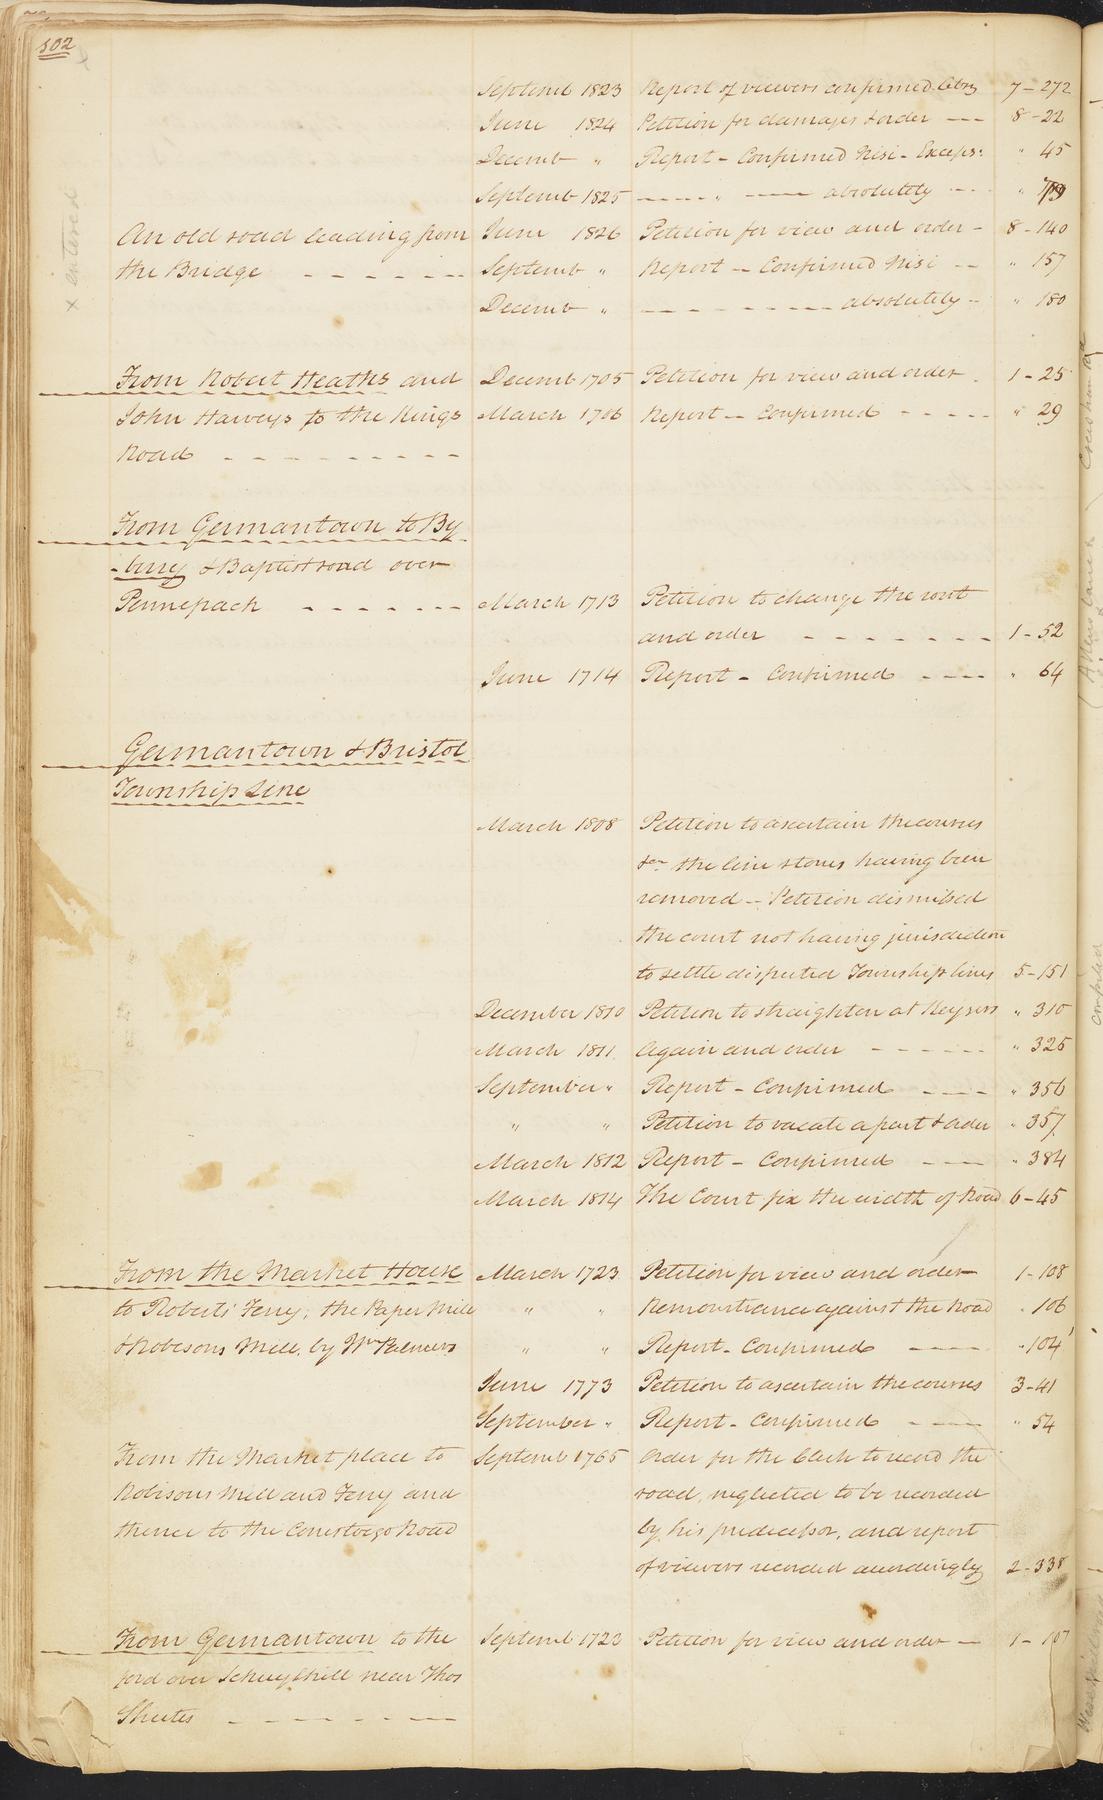 102
Septemb 1823 Report of viewers confirmed 7-272
June 1824 Petition for damages & order --- 8-22
Decemb " Report - Confirmed Nisi - Exceps: " 45
Septemb 1825 ---- " ---- absolutely --- "
An old road leading from June 1826 Petition for view and order - 8-140
the Bridge - - - - - - Septemb " Report -- Confirmed Nisi -- " 157
Decemb " - - - - - - - - - absolutely -- " 180
x entered
From Robert Heaths and Decemb 1705 Petition for view and order - 1-25
John Harveys to the Kings March 1706 Report -- Confirmed - - - - - " 29
Road - - - - - - - - -
From Germantown to By
-berry & Baptist road over
Pennepack - - - - - - March 1713 Petition to change the rout
and order - - - - - - - - 1-52
June 1714 Report - Confirmed ---- " 64
Germantown & Bristol
Township Line
March 1808 Petition to ascertain the courses
&ca the line stones having been
removed -- Petition dismissed
the court not having jurisdiction
to settle disputed Township lines 5-151
December 1810 Petition to straighten at Keysers " 310
March 1811 Again and order - - - - - - " 325
September " Report - Confirmed ---- " 356
" " Petition to vacate a part & order " 357
March 1812 Report - Confirmed ---- " 384
March 1814 The Court fix the width of Road 6-45
From the Market House March 1723 Petition for view and order 1-108
to Roberts' Ferry, the Paper Mill " " Remonstrance against the Road " 106
& Robesons Mill, by Wm Palmers " " Report - Confirmed ---- " 104
June 1773 Petition to ascertain the courses 3-41
September " Report - Confirmed ---- " 54
From the Market place to Septemb 1765 Order for the Clerk to record the
Robisons Mill and Ferry and road, neglected to be recorded
thence to the Conestogo Road by his predecessor, and report
of viewers recorded accordingly 2-338
From Germantown to the Septemb 1723 Petition for view and order -- 1-107
ford over Schuylkill near Thos
Shutes - - - - - - - -